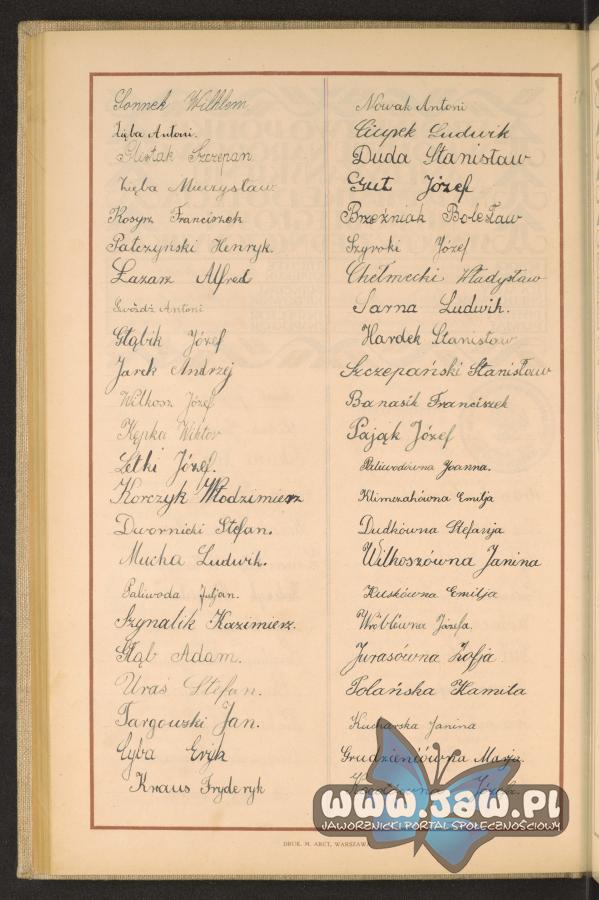 Sonnek Wilhelm
Zięba Antoni.
Glistak Szczepan
Zięba Mieczysław
Kosyrz Franciszek
Patczyński Henryk.
Łazarz Alfred
Gwóźdź Antoni
Głąbik Józef
Jarek Andrzej
Wilkosz Józef
Kępka Wiktor
Letki Józef.
Korczyk Włodzimierz
Dwornicki Stefan.
Mucha Ludwik.
Paliwoda Juljan.
Szynalik Kazimierz.
Głąb Adam.
Uraś Stefan.
Targowski Jan.
Cyba Eryk
Kraus Fryderyk
Nowak Antoni
Ciupek Ludwik
Duda Stanisław
Gut Józef
Brzeźniak Bolesław
Szyroki Józef
Chełmecki Władysław
Sarna Ludwik.
Hardek Stanisław
Szczepański Stanisław
Banasik Franciszek
Pająk Józef
Paliwodówna Joanna.
Klimczakówna Emilja
Dudkówna Stefanja
Wilkoszówna Janina
Kuskówna Emilja
Wróblówna Józefa.
Jurasówna Zofja
Polańska Kamila
Kucharska Janina
Grudzieniówna Marja.
www.jaw.pl
JAWORZNICKI PORTAL SPOŁECZNOŚCIOWY
DRUK. M. ARCT, WARSZAWA